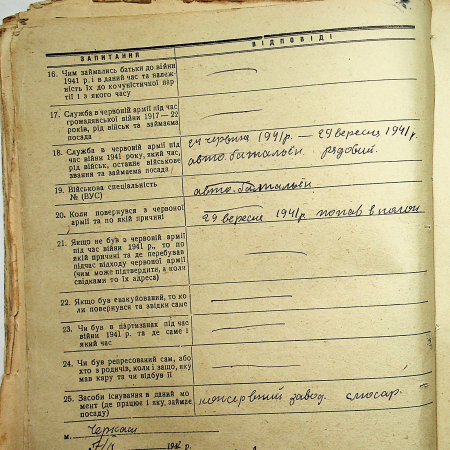 ЗАПИТАННЯ
ВІДПОВІДІ
16. Чим займались батьки до війни
1941 р. і в даний час та належ-
ність їх до комуністичної пар-
тії і з якого часу
17. Служба в червоній армії під час
громадянської війни 1917—22
років, рід військ та займаєма
посада
18. Служба в червоній армії під
час війни 1941 року, який час,
рід військ, оставнє військове
звання та займаєма посада
24 червня 1941 р. — 29 вересня 1941 р.
авто. батальйон. рядовий.
19. Військова спеціальність
№ (ВУС)
авто. батальйон
20. Коли повернувся з червоної
армії та по якій причині
29 вересня 1941 р попав в полон
21. Якщо не був в червоній армії
під час війни 1941 р., то по
якій причині та де перебував
підчас відходу червоної армії
(чим може підтвердити, а коли
свідками то їх адреса)
22. Якщо був евакуйований, то ко-
ли повернувся та звідки саме
23. Чи був в партизанах під час
війни 1941 р. та де саме і
який час
24. Чи був репресований сам, або
хто з родичів, коли і защо, яку
мав кару та чи відбув її
25. Засоби існування в даний мо-
мент (де працює і яку, займає
посаду)
консервний завод. слюсар.
м. Черкаси
194 р.